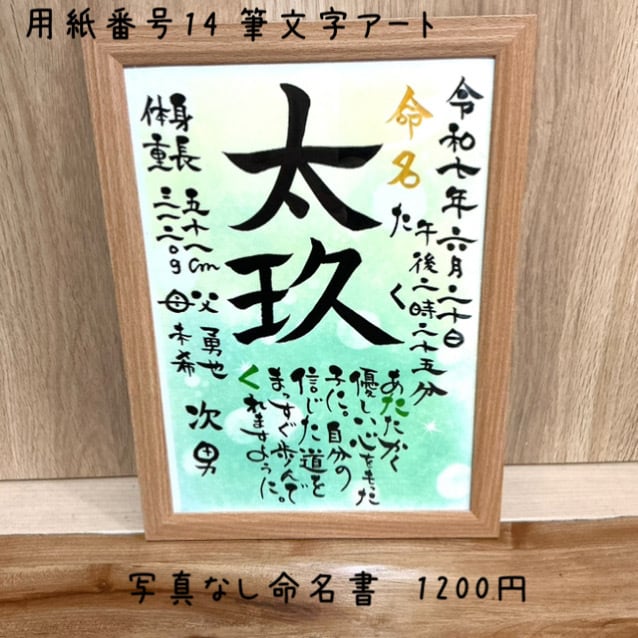 用紙番号14 筆文字アート
令和七年六月二十日
午後二時二十五分
命名
たく
太玖
身長 五十一cm
体重 三一二〇g
父 勇也
母 未希
次男
あたたかく
優しい心をもった
子に。自分の
信じた道を
まっすぐ歩んで
くれますように。
写真なし命名書 1200円